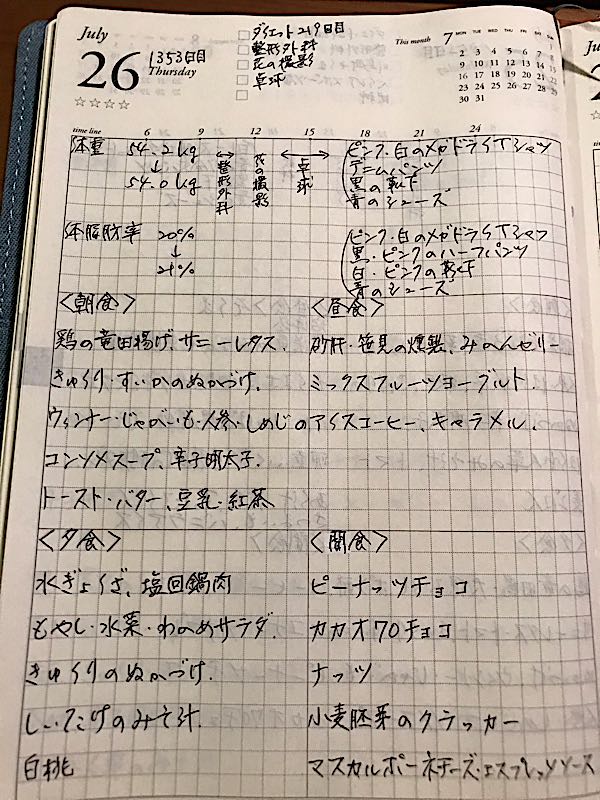 July
26
Thursday
1353日目
ダイエット219日目
整形外科
花の撮影
卓球
This month 7
MON TUE WED THU FRI SAT SUN
1
2 3 4 5 6 7 8
9 10 11 12 13 14 15
16 17 18 19 20 21 22
23 24 25 26 27 28 29
30 31
☆☆☆☆
time line 6 9 12 15 18 21 24
体重 54.2kg
↓
54.0kg
整形外科
花の撮影
卓球
ピンク・白のメガドライTシャツ
デニムパンツ
黒の靴下
青のシューズ
体脂肪率 20%
↓
21%
ピンク・白のメガドライTシャツ
黒・ピンクのハーフパンツ
白・ピンクの靴下
青のシューズ
<朝食>
鶏の竜田揚げ サニーレタス.
きゅうり・すいかのぬかづけ.
ウィンナー・じゃがいも・人参・しめじの
コンソメスープ、辛子明太子.
トースト・バター、豆乳・紅茶
<昼食>
砂肝・笹見の燻製、みかんゼリー
ミックスフルーツヨーグルト.
アイスコーヒー、キャラメル.
<夕食>
水ぎょうざ、塩回鍋肉
もやし・水菜・わかめサラダ.
きゅうりのぬかづけ.
しいたけのみそ汁.
白桃
<間食>
ピーナッツチョコ
カカオ70チョコ
ナッツ
小麦胚芽のクラッカー
マスカルポーネチーズ・エスプレッソソース